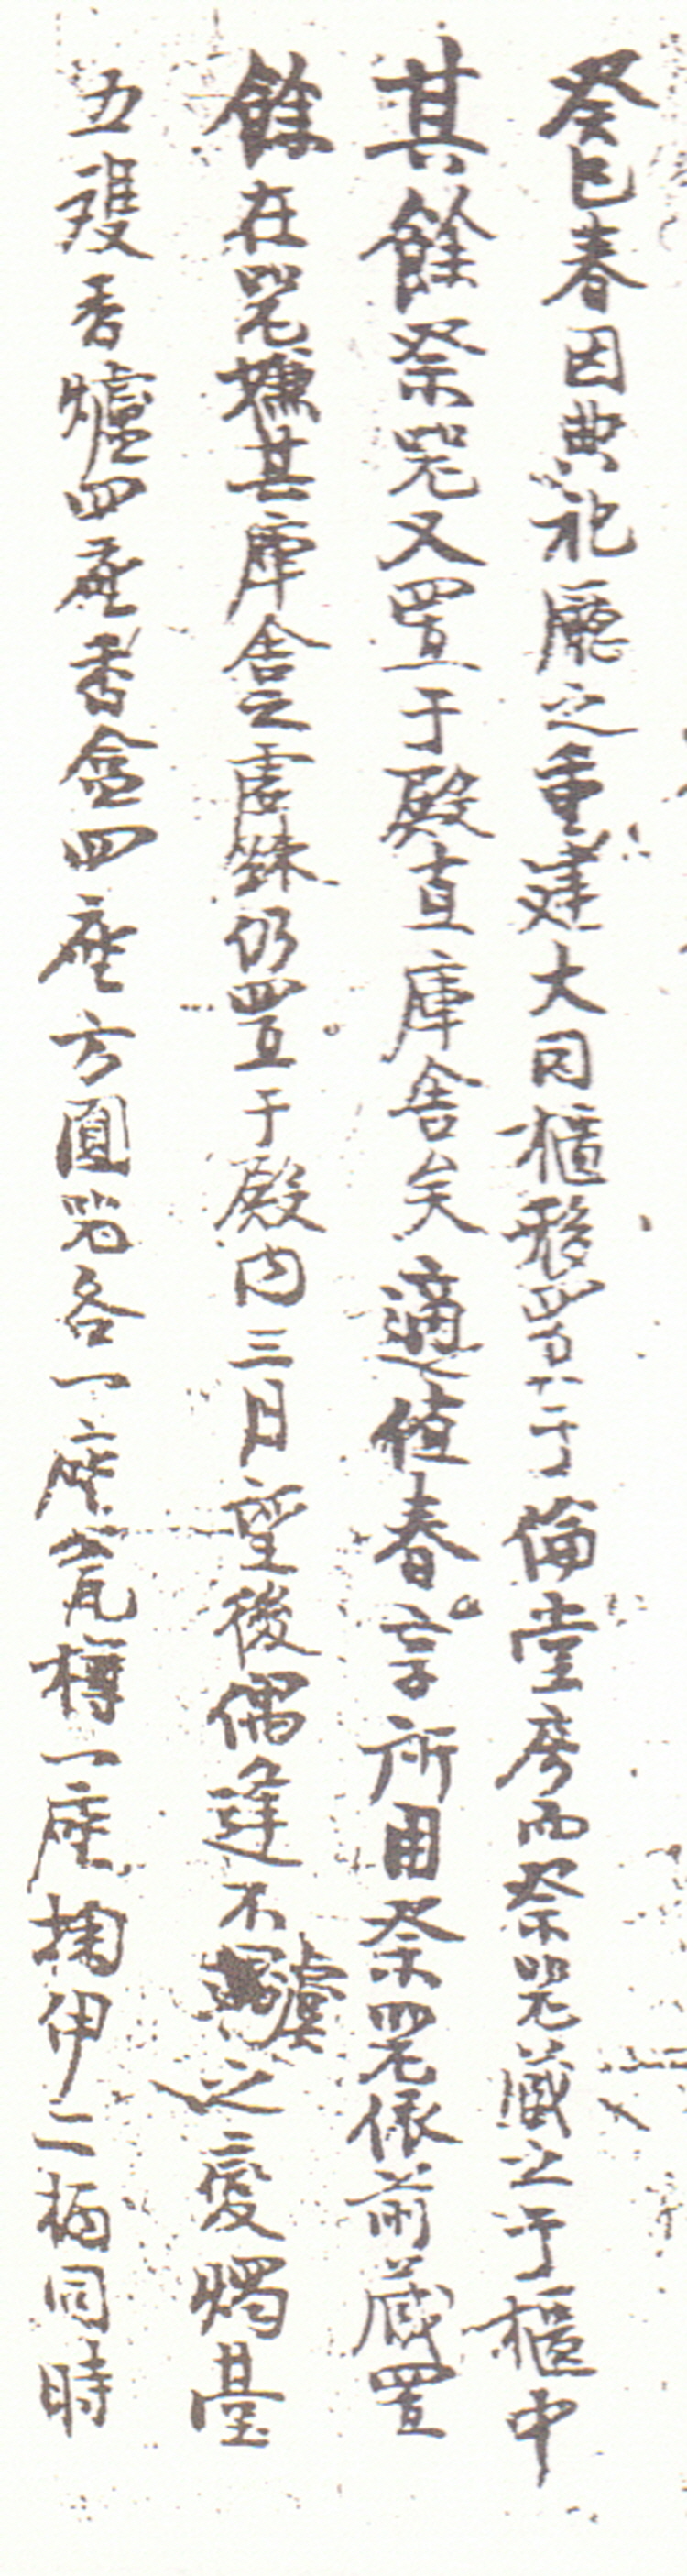 癸巳春因典祀廳之重建大同樻移置于倫堂房而祭器藏之于樻中
其餘祭器又置于殿直庫舍矣適値春享所用祭器依前藏置
餘在器嫌其庫舍之虛踈仍置于殿內三月望後偶逢不虞之變燭臺
五雙香爐四座香盒四座方圓器各一座瓷樽一座掬伊二柄同時